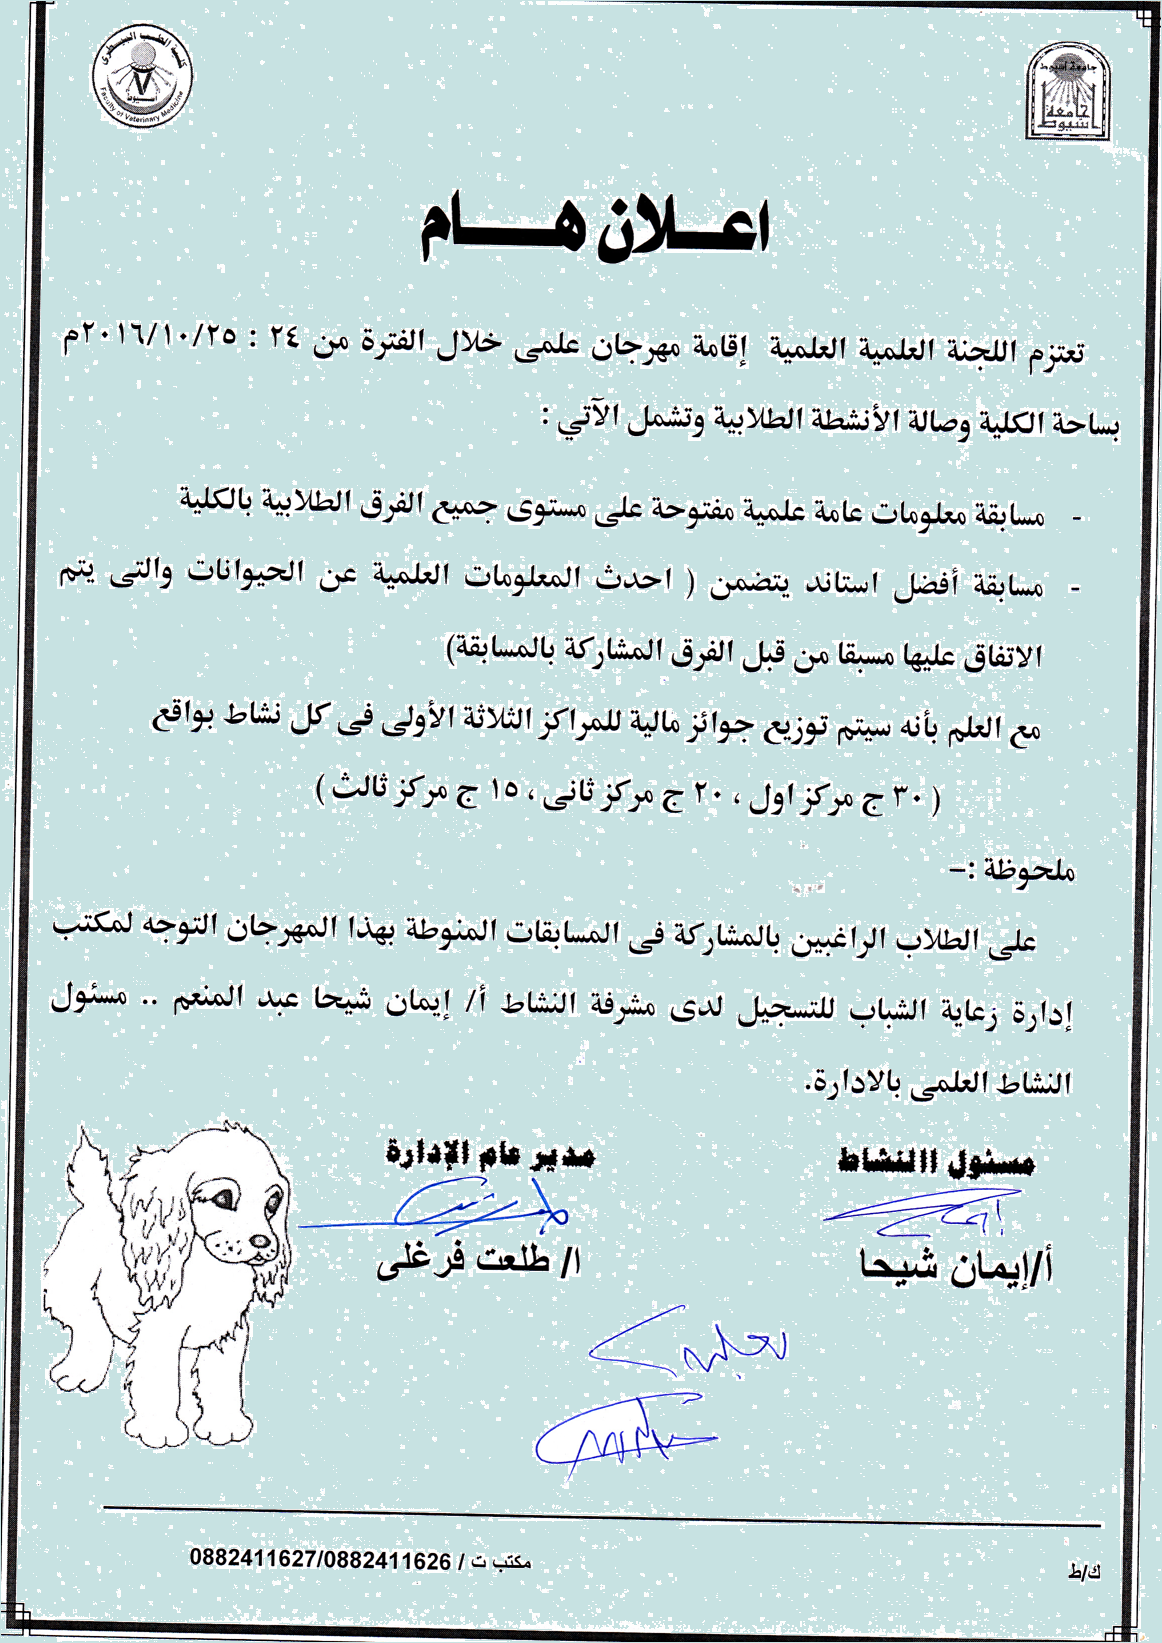 كلية الطب البيطرى
أسيوط
Faculty of Veterinary Medicine
جامعة أسيوط
جامعة
اسيوط
اعـــلان هـــــام
تعتزم اللجنة العلمية العلمية إقامة مهرجان علمى خلال الفترة من ٢٤ : ٢٠١٦/١٠/٢٥م
بساحة الكلية وصالة الأنشطة الطلابية وتشمل الآتي :
- مسابقة معلومات عامة علمية مفتوحة على مستوى جميع الفرق الطلابية بالكلية
- مسابقة أفضل استاند يتضمن ( احدث المعلومات العلمية عن الحيوانات والتى يتم
الاتفاق عليها مسبقا من قبل الفرق المشاركة بالمسابقة)
مع العلم بأنه سيتم توزيع جوائز مالية للمراكز الثلاثة الأولى فى كل نشاط بواقع
( ٣٠ ج مركز اول ، ٢٠ ج مركز ثانى ، ١٥ ج مركز ثالث )
ملحوظة :–
على الطلاب الراغبين بالمشاركة فى المسابقات المنوطة بهذا المهرجان التوجه لمكتب
إدارة رعاية الشباب للتسجيل لدى مشرفة النشاط أ/ إيمان شيحا عبد المنعم .. مسئول
النشاط العلمى بالادارة.
مسئول االنشاط
مدير عام الإدارة
أ/إيمان شيحا
ا/ طلعت فرغلى
مكتب ت / 0882411627/0882411626
ك/ط